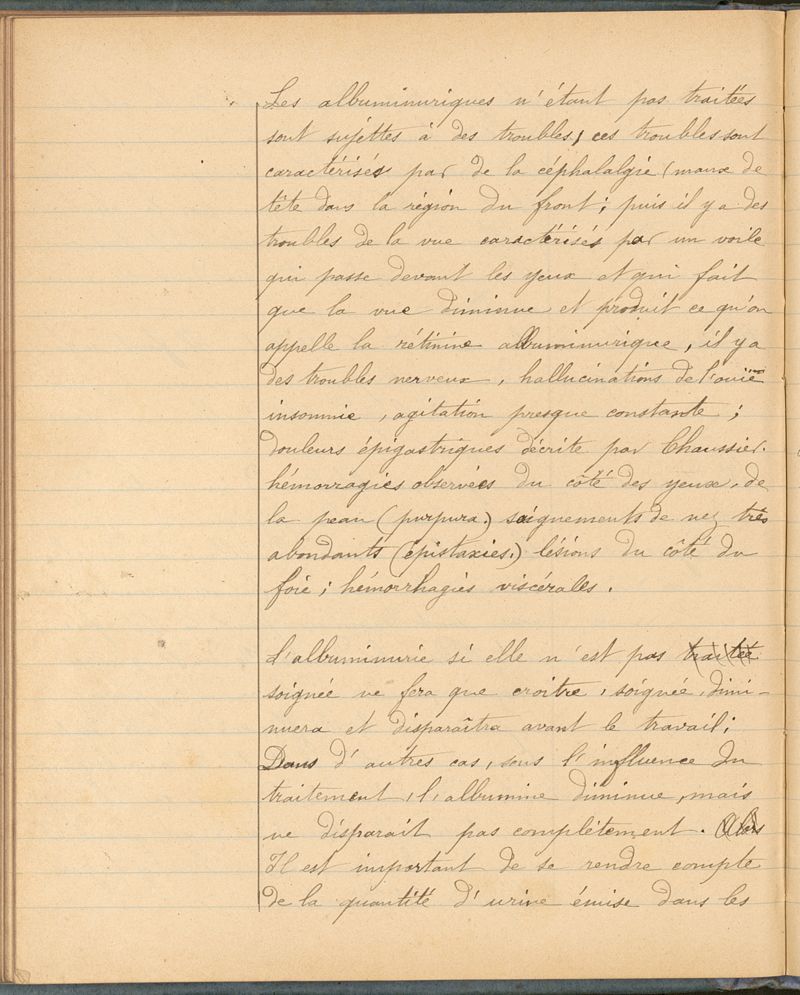 Les albuminuriques n'étant pas traitées
sont sujettes à des troubles, ces troubles sont
caractérisés par de la céphalalgie (maux de
tête dans la région du front; puis il y a des
troubles de la vue caractérisés par un voile
qui passe devant les yeux et qui fait
que la vue diminue et produit ce qu'on
appelle la rétinine albuminurique, il y a
des troubles nerveux, hallucinations de l'ouïe
insomnie, agitation presque constante;
douleurs épigastriques décrite par Chaussier.
hémorragies observées du côté des yeux, de
la peau (purpura.) saignements de nez très
abondants (épistaxies.) lésions du côté du
foie; hémorrhagies viscérales.
L'albuminurie si elle n'est pas traitée
soignée ne fera que croitre, soignée, dimi-
nuera et disparaîtra avant le travail;
Dans d'autres cas, sous l'influence du
traitement, l'albumine diminue, mais
ne disparait pas complètement. Alors
Il est important de se rendre compte
de la quantité d'urine émise dans les